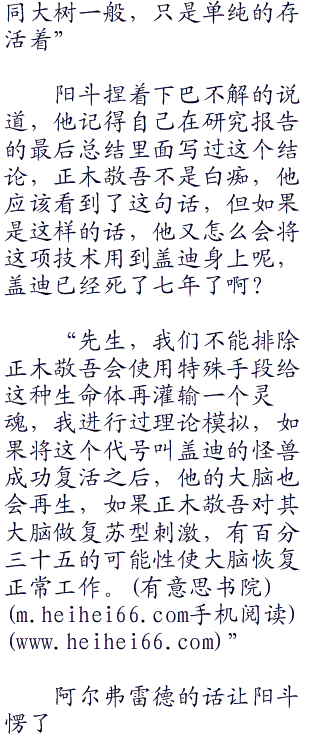 同大树一般，只是单纯的存
活着”
阳斗捏着下巴不解的说
道，他记得自己在研究报告
的最后总结里面写过这个结
论，正木敬吾不是白痴，他
应该看到了这句话，但如果
是这样的话，他又怎么会将
这项技术用到盖迪身上呢，
盖迪已经死了七年了啊？
“先生，我们不能排除
正木敬吾会使用特殊手段给
这种生命体再灌输一个灵
魂，我进行过理论模拟，如
果将这个代号叫盖迪的怪兽
成功复活之后，他的大脑也
会再生，如果正木敬吾对其
大脑做复苏型刺激，有百分
三十五的可能性使大脑恢复
正常工作。(有意思书院)
(m.heihei66.com手机阅读)
(www.heihei66.com)”
阿尔弗雷德的话让阳斗
愣了